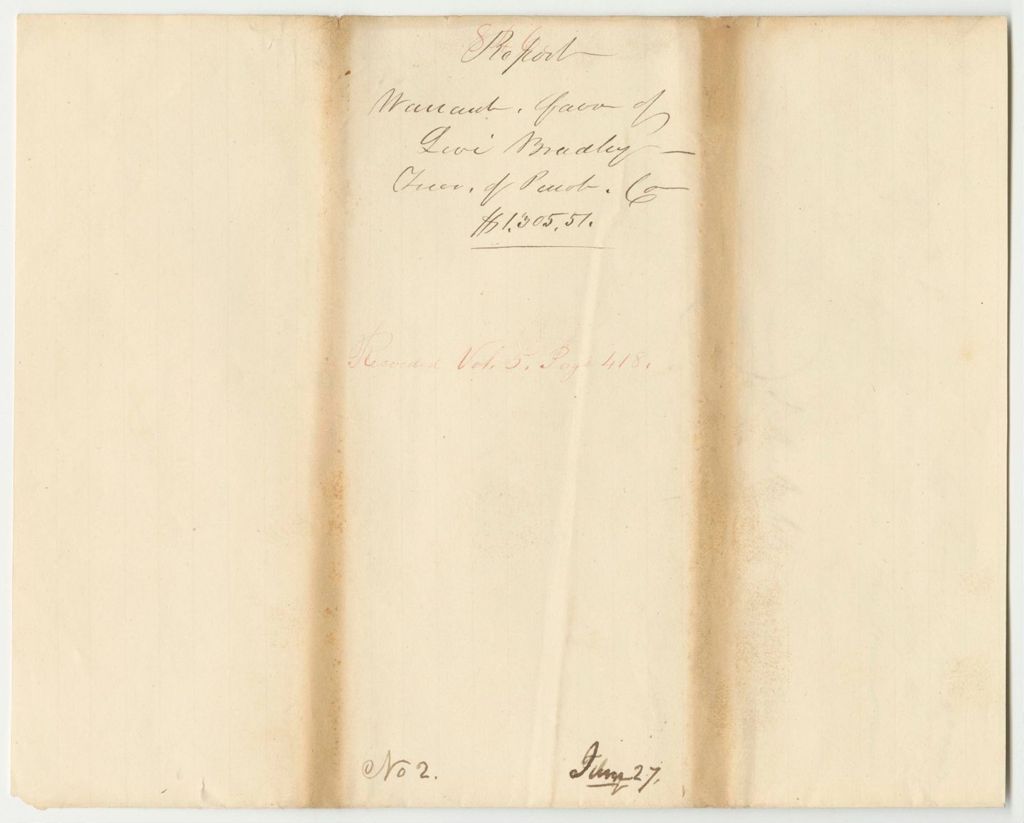 Report
Warrant. favor of
Levi Bradley —
Treas. of Penob. Co
$1,305,51.
Recorded Vol. 5. Page 418.
No 2. 27.